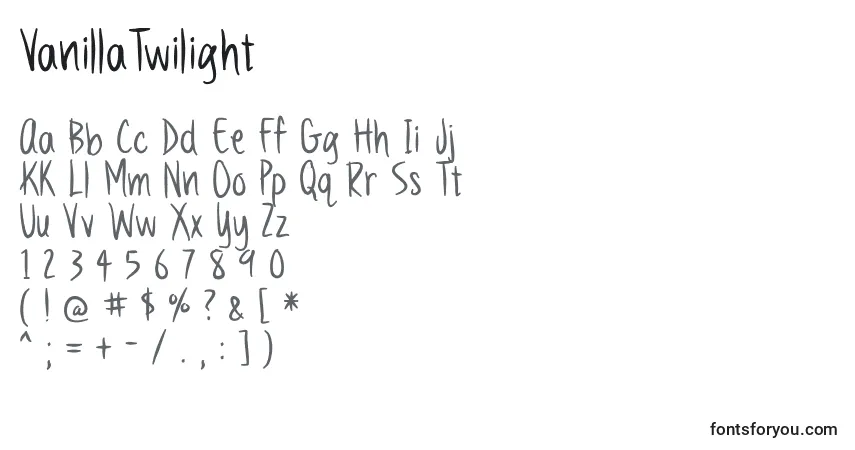 VanillaTwilight
Aa Bb Cc Dd Ee Ff Gg Hh Ii Jj
KK Ll Mm Nn Oo Pp Qq Rr Ss Tt
Uu Vv Ww Xx Yy Zz
1 2 3 4 5 6 7 8 9 0
( ! @ # $ % ? & [ *
^ ; = + - / . , : ] )
fontsforyou.com